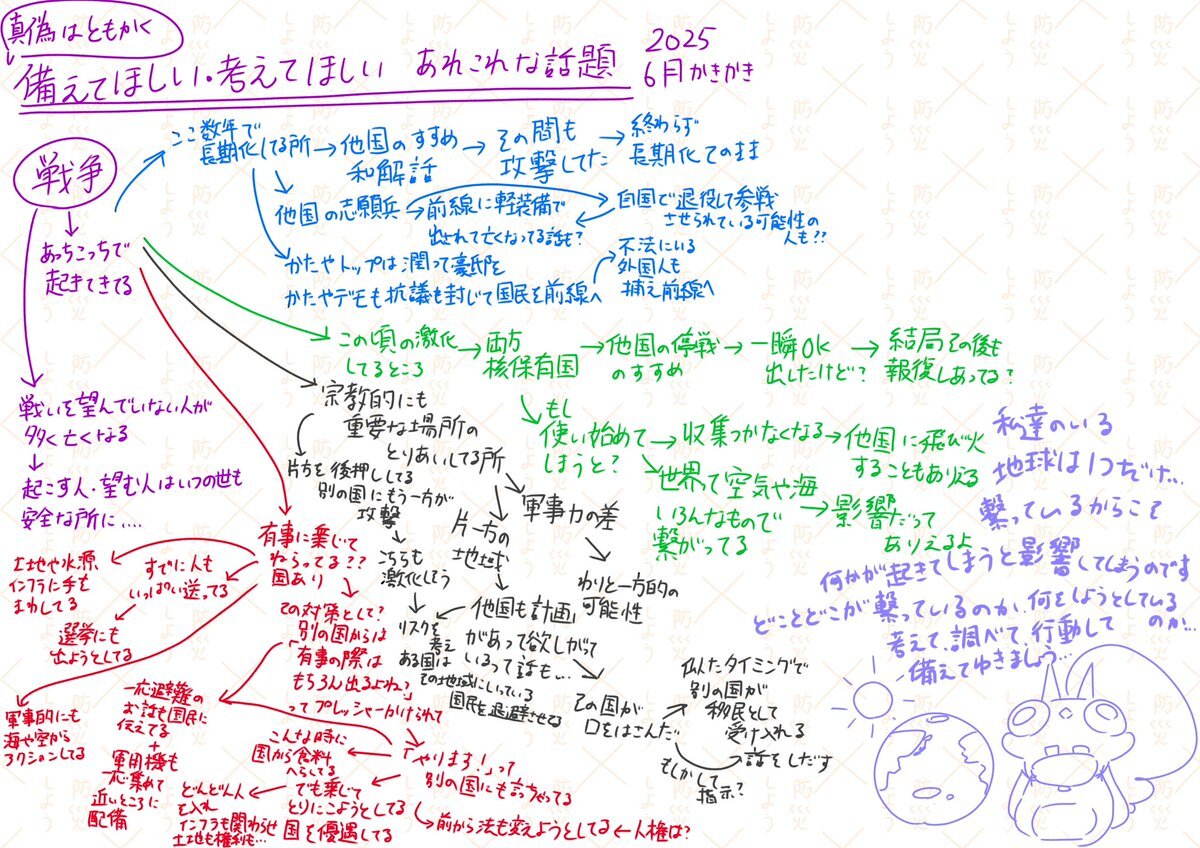 真偽はともかく
備えてほしい・考えてほしい あれこれな話題
2025
6月かきかき
戦争
あっちこっちで
起きてきてる
戦いを望んでいない人が
多く亡くなる
起こす人・望む人はいつの世も
安全な所に‥‥
ここ数年で
長期化してる所
他国のすすめ
和解話
その間も
攻撃してた
終わらず
長期化てのまま
他国の志願兵
前線に軽装備で
出されて亡くなってる話も?
自国で退役して参戦
させられている可能性の
人も??
かたやトップは潤って豪邸を
かたやデモも抗議も封じて国民を前線へ
不法にいる
外国人も
捕え前線へ
この頃の激化
してるところ
両方
核保有国
他国の停戦
のすすめ
一瞬OK
出したけど?
結局その後も
報復しあってる?
もし
使い始めて
しまうと?
収集つかなくなる
他国に飛び火
することもありえる
世界って空気や海
いろんなもので
繋がってる
影響だって
ありえるよ
宗教的にも
重要な場所の
とりあいしてる所
片方を後押ししてる
別の国にもう一方が
攻撃
こちらも
激化してう
軍事力の差
わりと一方的の
可能性
片一方の
地域
他国も計画
があって欲しがって
いるって話も…
リスクを
考え
ある国は
その地域にいっている
国民を退避させる
その国が
口をはさんだ‥
似たタイミングで
別の国が
移民として
受け入れる
話をしだす
もしかして
指示?
有事に乗じて
ねらってる??
国あり
土地や水源
インフラに手も
まわしてる
すでに人も
いっぱい送ってる
選挙にも
出ようとしてる
軍事的にも
海や空から
アクションしてる
その対策として?
別の国からは
「有事の際は
もちろん出るよね?」
ってプレッシャーかけられて
一応避難の
お話も国民に
伝えてる
+
軍用機も
一応集めて
近いところに
配備
「やります!」って
別の国にも話ちゃってる
こんな時に
国から食料
へらしてる
でも乗じて
とりにこようとしてる
国を優遇してる
どんどん人
を入れ
インフラも関わらせ
土地も権利も…
前から法も変えようとしてる
人権は?
私達のいる
地球は1つだけ…
繋っているからこそ
何かが起きてしまうと影響してしまうのです
どことどこが繋っているのか、何をしようとしている
のか…
考えて、調べて、行動して
備えてゆきましょう…
防災
しよう